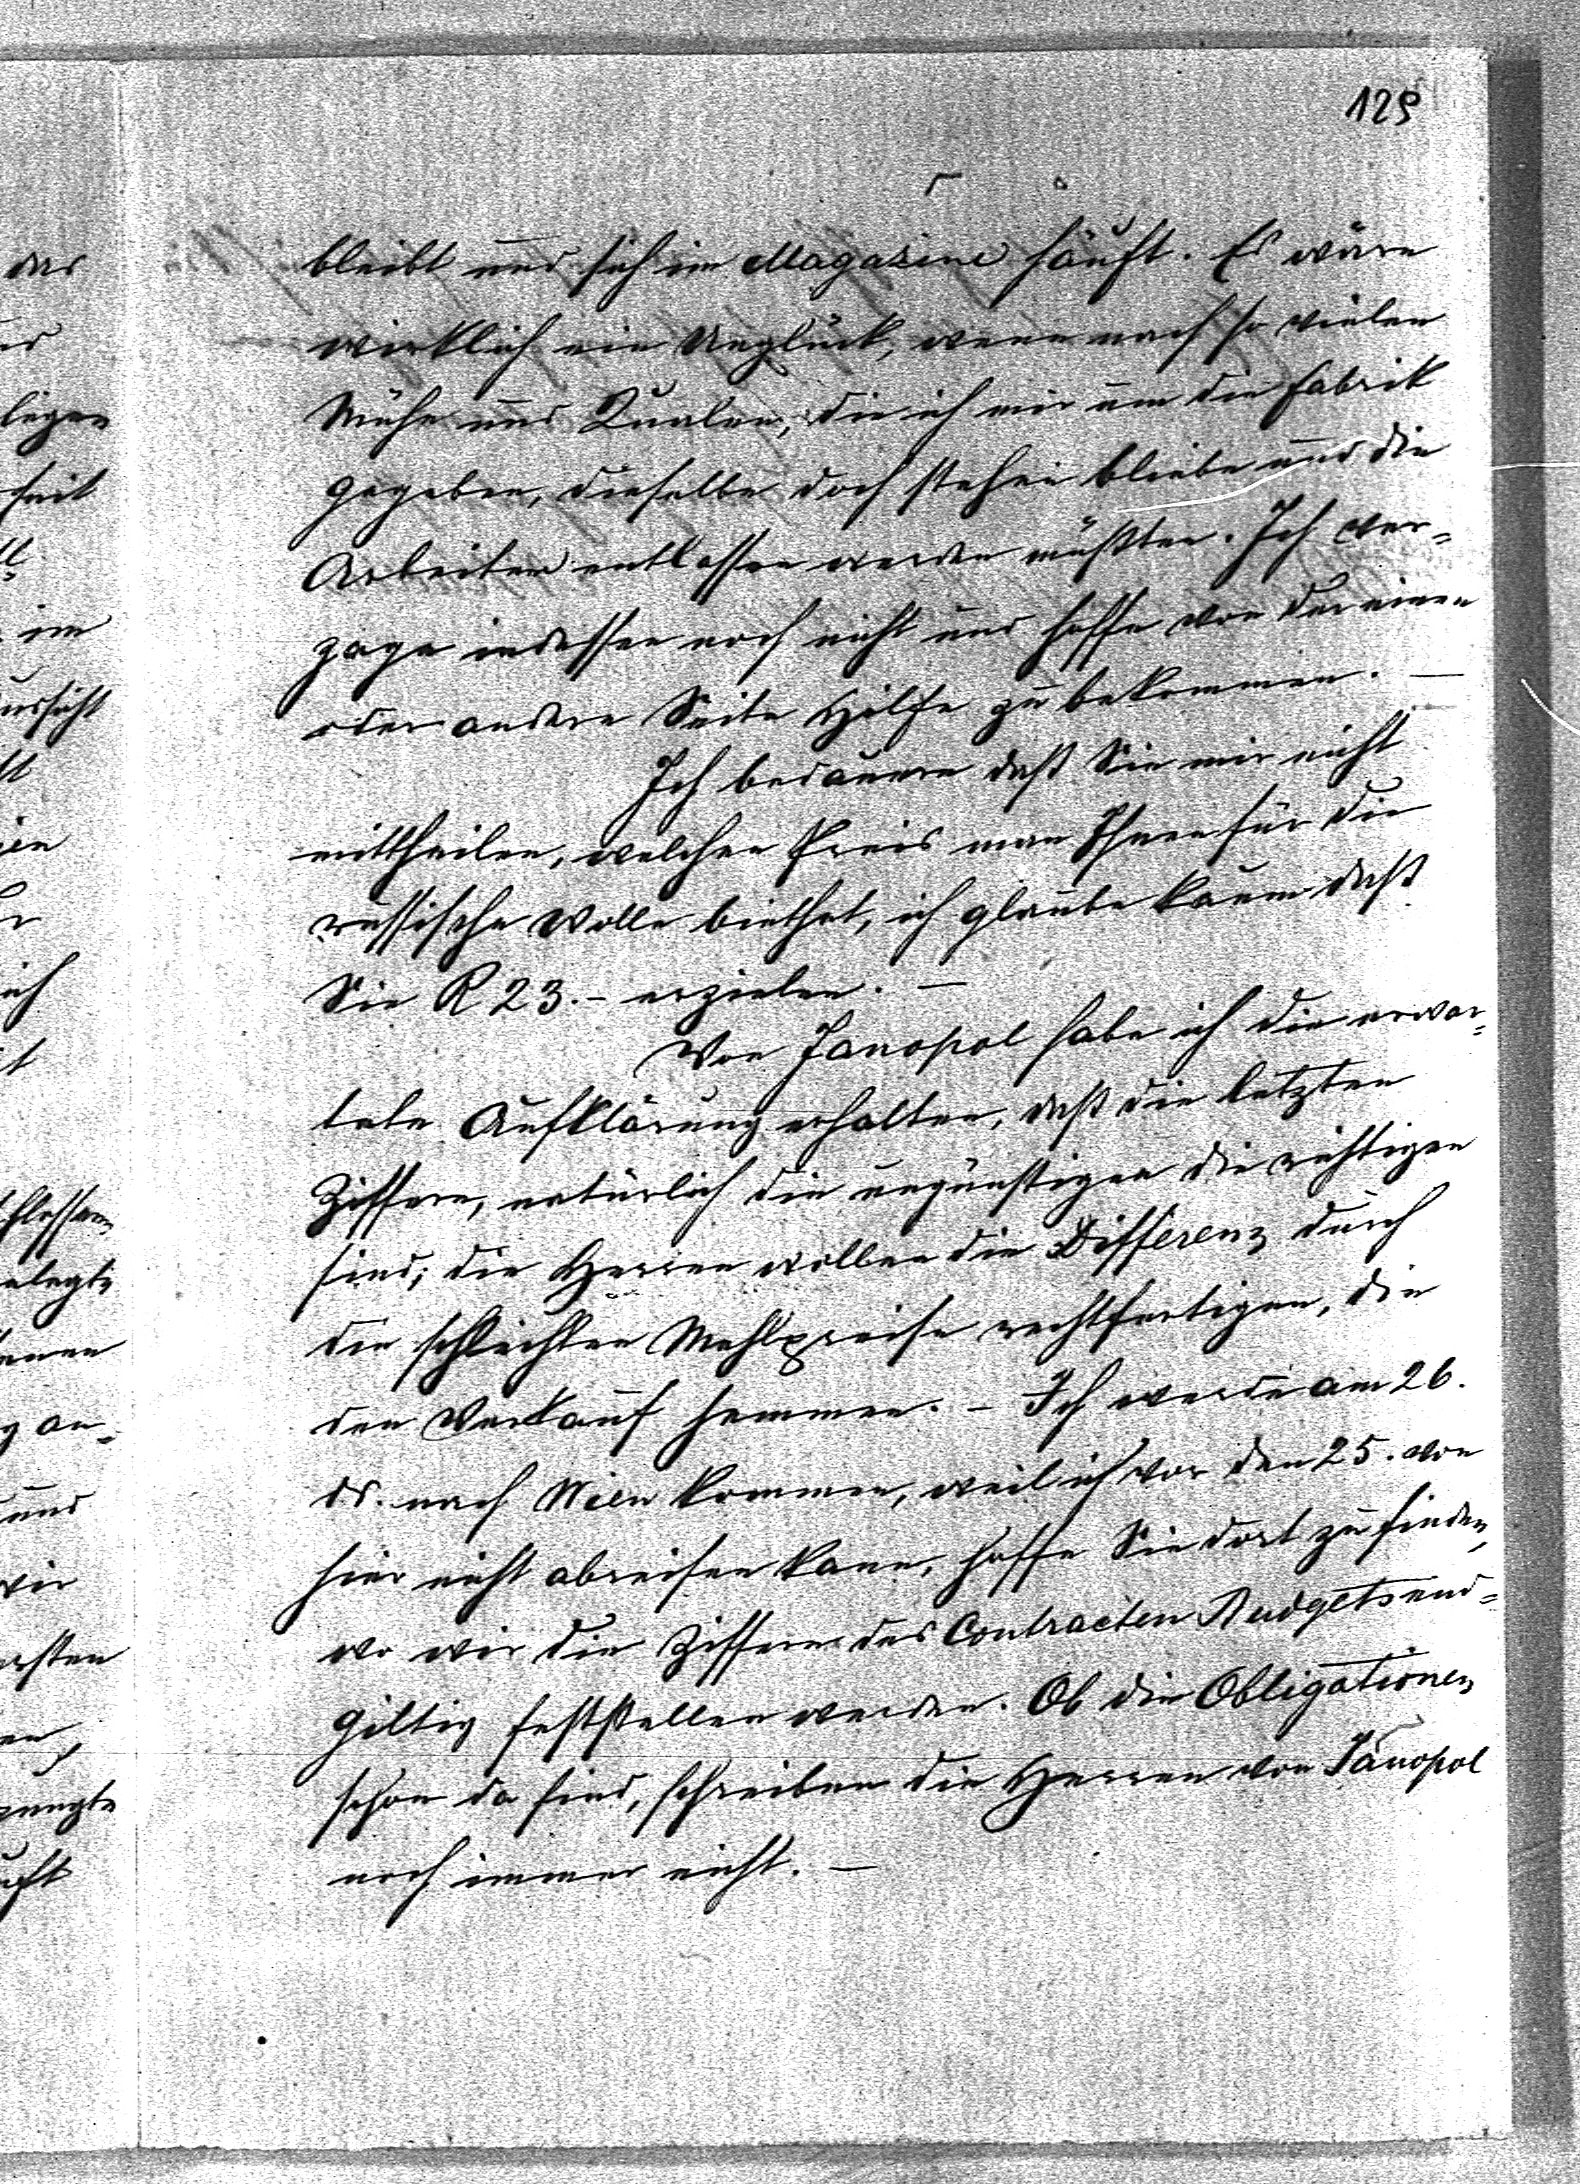 129
bleibt und sich im Magazine häuft. Es wäre
wirklich ein Unglück, wenn nach so vielen
Mühe und Qualen, die ich mir um die Fabrik
gegeben, dieselbe doch stehen bliebe und die
Arbeiter entlassen werden müßten. Ich ver-
zage indessen noch nicht und hoffe von der einen
oder andern Seite Hilfe zu bekommen. —
Ich bedauere daß Sie mir nicht
mittheilen, welchen Preis man Ihnen für die
russische Wolle biethet, ich glaube kaum daß
Sie R 23.- erzielen. —
Von Janopol habe ich die erwar-
tete Aufklärung erhalten, daß die letzten
Ziffern, natürlich die ungünstigen die richtigen
sind; die Herren wollen die Differenz durch
die schlechten Mehlpreise rechtfertigen, die
den Verkauf hemmen. – Ich werde am 26.
ds. nach Wien kommen, weil ich vor den 25. von
hier nicht abreisen kann, hoffe Sie dort zu finden,
wo wir die Ziffern des Contracten Budgets end-
giltig feststellen werden. Ob die Obligationen
schon da sind, schreiben die Herren von Janopol
noch immer nicht. —
das
im
ich
an-
und
wir